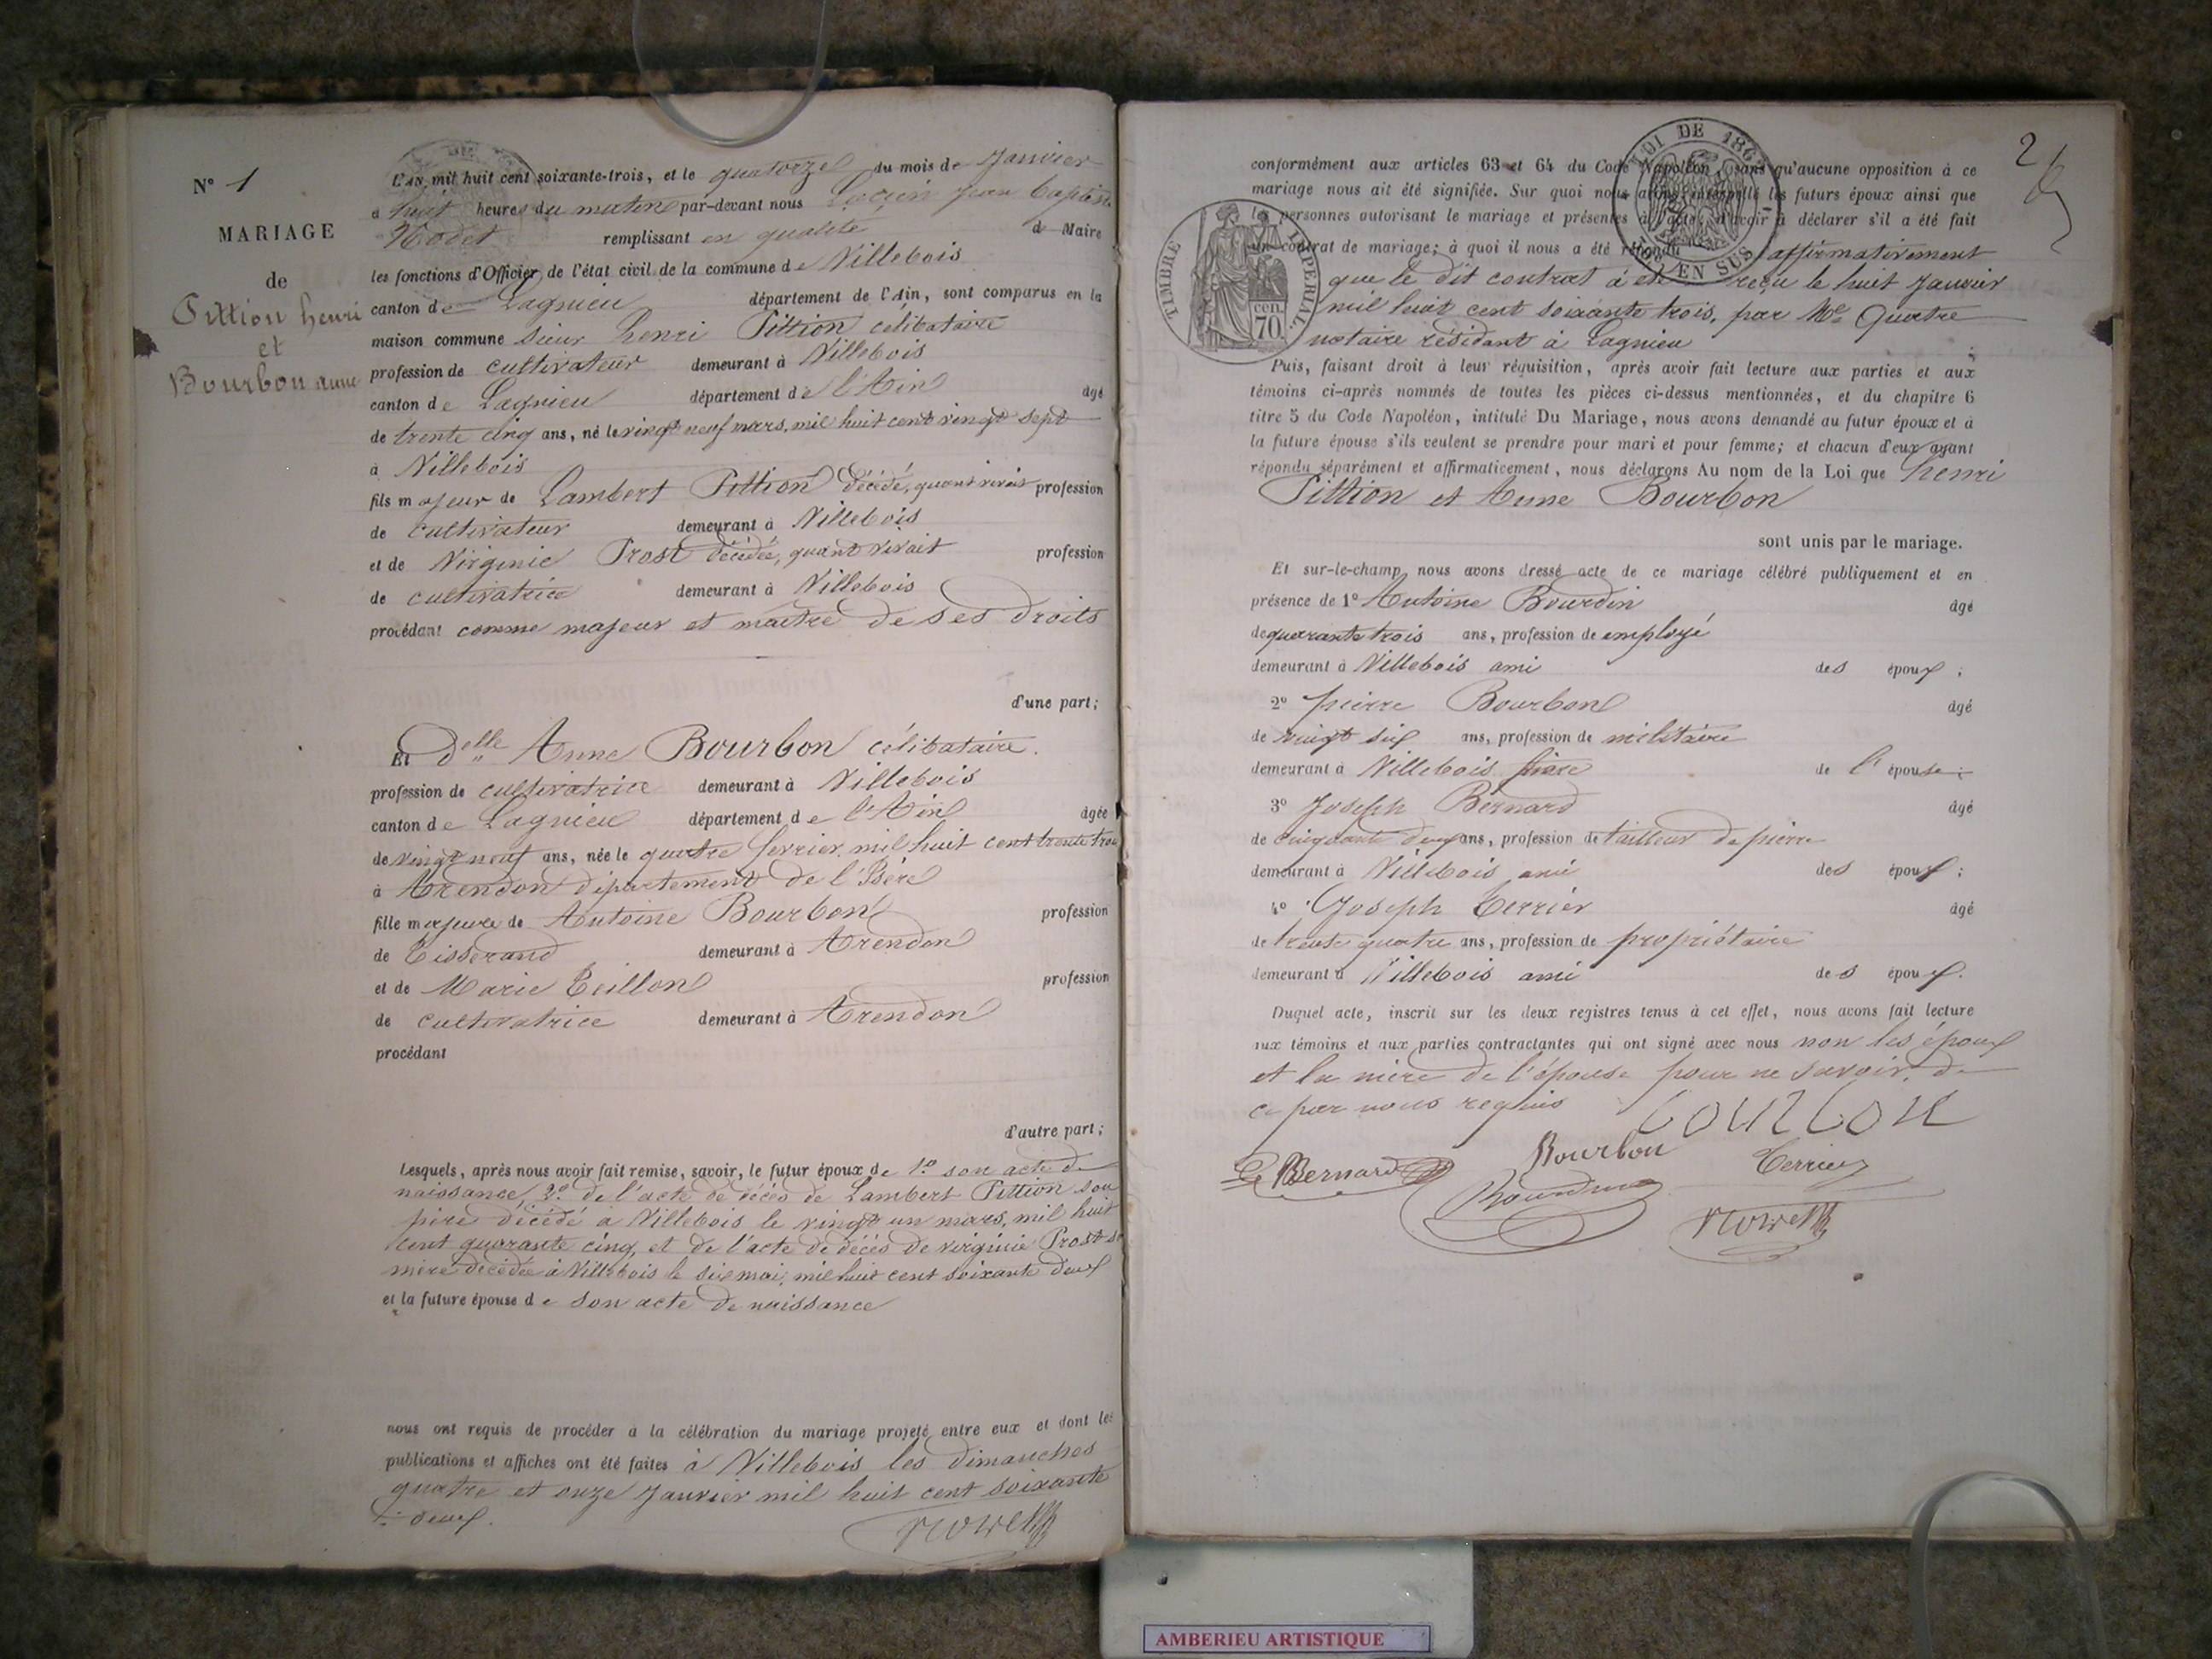 N° 1
MARIAGE
de
Pittion henri
et
Bourbon anne
L'AN mil huit cent soixante-trois, et le quatorze du mois de Janvier
à huit heures du matin par-devant nous Lucien jean baptiste
Nodet remplissant en qualité de Maire
les fonctions d'Officier de l'état civil de la commune de Villebois
canton de Lagnieu département de l'Ain, sont comparus en la
maison commune sieur henri Pittion celibataire
profession de cultivateur demeurant à Villebois
canton de Lagnieu département de l'Ain âgé
de trente cinq ans, né le vingt neuf mars, mil huit cent vingt sept
à Villebois
fils majeur de Lambert Pittion décédé, quant vivait profession
de cultivateur demeurant à Villebois
et de Virginie Prost décédée, quant vivait profession
de cultivatrice demeurant à Villebois
procédant comme majeur et maitre de ses droits
d'une part;
Et delle Anne Bourbon célibataire.
profession de cultivatrice demeurant à Villebois
canton de Lagnieu département de l'Ain âgée
de vingt neuf ans, née le quatre fevrier mil huit cent trente trois
à Arendon département de l'Isère
fille majeure de Antoine Bourbon profession
de Tisserand demeurant à Arendon
et de Marie Teillon profession
de cultivatrice demeurant à Arendon
procédant
d'autre part;
Lesquels, après nous avoir fait remise, savoir, le futur époux de 1° son acte de
naissance, 2° de l'acte de décès de Lambert Pittion son
père décédé à Villebois le vingt un mars, mil huit
cent quarante cinq, et de l'acte de décès de virginie Prost sa
mère décédée à Villebois le six mai, mil huit cent soixante deux
et la future épouse de son acte de naissance
nous ont requis de procéder à la célébration du mariage projeté entre eux et dont les
publications et affiches ont été faites à Villebois les dimanches
quatre et onze Janvier mil huit cent soixante
deux.
2
LOI DE 1862
EN SUS
TIMBRE IMPERIAL
70 cen.
conformément aux articles 63 et 64 du Code Napoléon, sans qu'aucune opposition à ce
mariage nous ait été signifiée. Sur quoi nous avons interpellé les futurs époux ainsi que
les personnes autorisant le mariage et présentes à l'acte, d'avoir à déclarer s'il a été fait
un contrat de mariage; à quoi il nous a été répondu affirmativement
que le dit contrat à été reçu le huit Janvier
mil huit cent soixante trois, par Me Quatre
notaire résidant à Lagnieu
Puis, faisant droit à leur réquisition, après avoir fait lecture aux parties et aux
témoins ci-après nommés de toutes les pièces ci-dessus mentionnées, et du chapitre 6
titre 5 du Code Napoléon, intitulé Du Mariage, nous avons demandé au futur époux et à
la future épouse s'ils veulent se prendre pour mari et pour femme; et chacun d'eux ayant
répondu séparément et affirmativement, nous déclarons Au nom de la Loi que henri
Pittion et Anne Bourbon
sont unis par le mariage.
Et sur-le-champ nous avons dressé acte de ce mariage célébré publiquement et en
présence de 1° Antoine Bourdin âgé
de quarante trois ans, profession de employé
demeurant à Villebois ami des époux;
2° pierre Bourbon âgé
de vingt six ans, profession de militaire
demeurant à Villebois frère de l'épouse;
3° Joseph Bernard âgé
de cinquante deux ans, profession de tailleur de pierre
demeurant à Villebois ami des époux;
4° Joseph Terrier âgé
de trente quatre ans, profession de propriétaire
demeurant à Villebois ami des époux.
Duquel acte, inscrit sur les deux registres tenus à cet effet, nous avons fait lecture
aux témoins et aux parties contractantes qui ont signé avec nous non les époux
et la mère de l'épouse pour ne savoir, de
ce par nous requis
Bourbon
Bernard
Terrier
Bourdin
AMBERIEU ARTISTIQUE